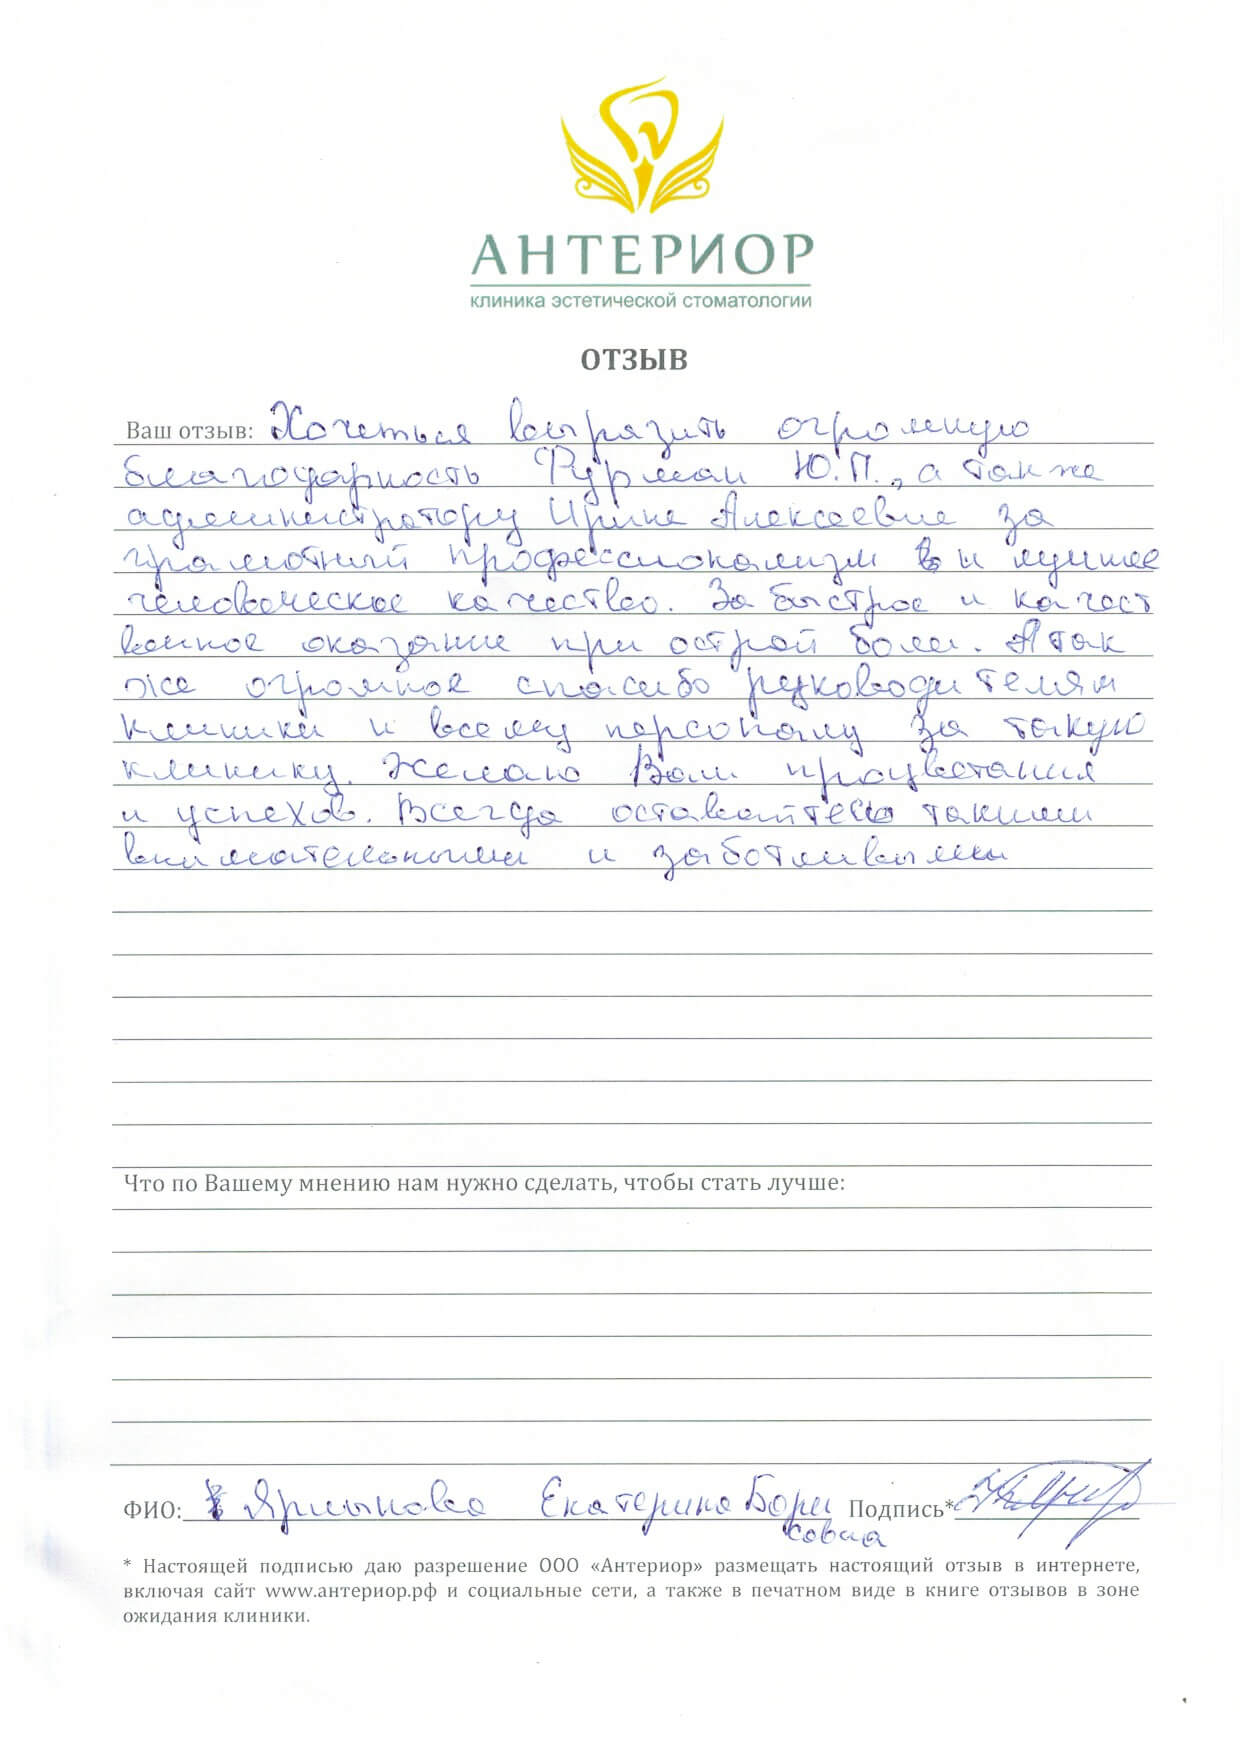 АНТЕРИОР
КЛИНИКА ЭСТЕТИЧЕСКОЙ СТОМАТОЛОГИИ
ОТЗЫВ
Ваш отзыв: Хочеться выразить огромную
благодарность Фурман Ю.П., а также
администратору Ирине Алексеевне за
грамотный профессионализм и лучшее
человеческое качество. За быстрое и качест
венное оказание при острой боли. А так
же огромное спасибо руководителям
клиники и всему персоналу за такую
клинику. Желаю Вам процветания
и успехов. Всегда оставайтесь такими
внимательными и заботливыми
Что по Вашему мнению нам нужно сделать, чтобы стать лучше:
ФИО: Екатерина Бори Подпись*
совна
* Настоящей подписью даю разрешение ООО «Антериор» размещать настоящий отзыв в интернете,
включая сайт www.антериор.рф и социальные сети, а также в печатном виде в книге отзывов в зоне
ожидания клиники.